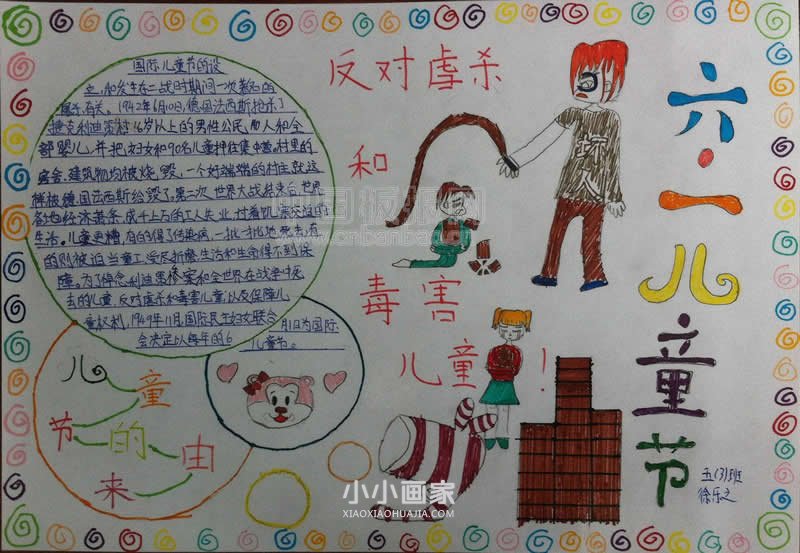 国际儿童节的设
立，和发生在二战时期间一次著名的
屠杀有关。1942年6月10日，德国法西斯枪杀了
捷克利迪策村16岁以上的男性公民，
部婴儿，并把妇女和90名儿童押往集中营。村里的
房舍、建筑物均被烧毁，一个好端端的村庄就这
样被德国法西斯给毁了。第二次世界大战结束后，世界
各地经济萧条，成千上万的工人失业，过着饥寒交迫的
生活。儿童更糟，有的得了传染病，一批一批地死去；有
的则被迫当童工，受尽折磨，生活和生命得不到保
障。为了悼念利迪策惨案和全世界在战争中死
去的儿童，反对虐杀和毒害儿童，以及保障儿
童权利，1949年11月，国际民主妇女联合
会决定以每年的6
月1日为国际
儿童节。
儿童
节的由
来
反对虐杀
和
毒害
儿童！
坏人
六·一儿童节
五(3)班
徐乐之
中国板报网
cnbanbao.cn
小小画家
XIAOXIAOHUAJIA.COM